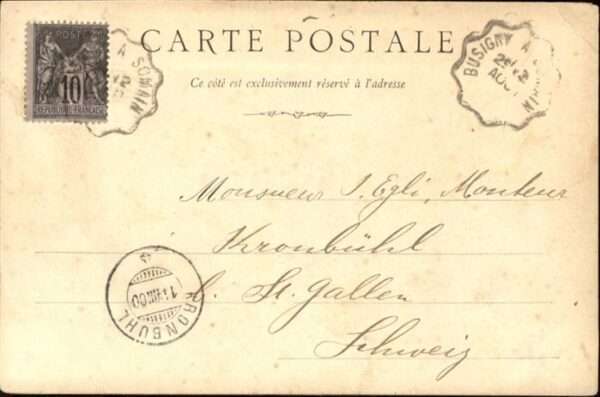 POSTES
10
RÉPUBLIQUE FRANÇAISE
A SOMAIN
CARTE POSTALE
Ce côté est exclusivement réservé à l'adresse
BUSIGNY A SOMAIN
AOU
Monsieur J. Egli, Monteur
Kronbühl
b. St. Gallen
Schweiz
KRONBÜHL